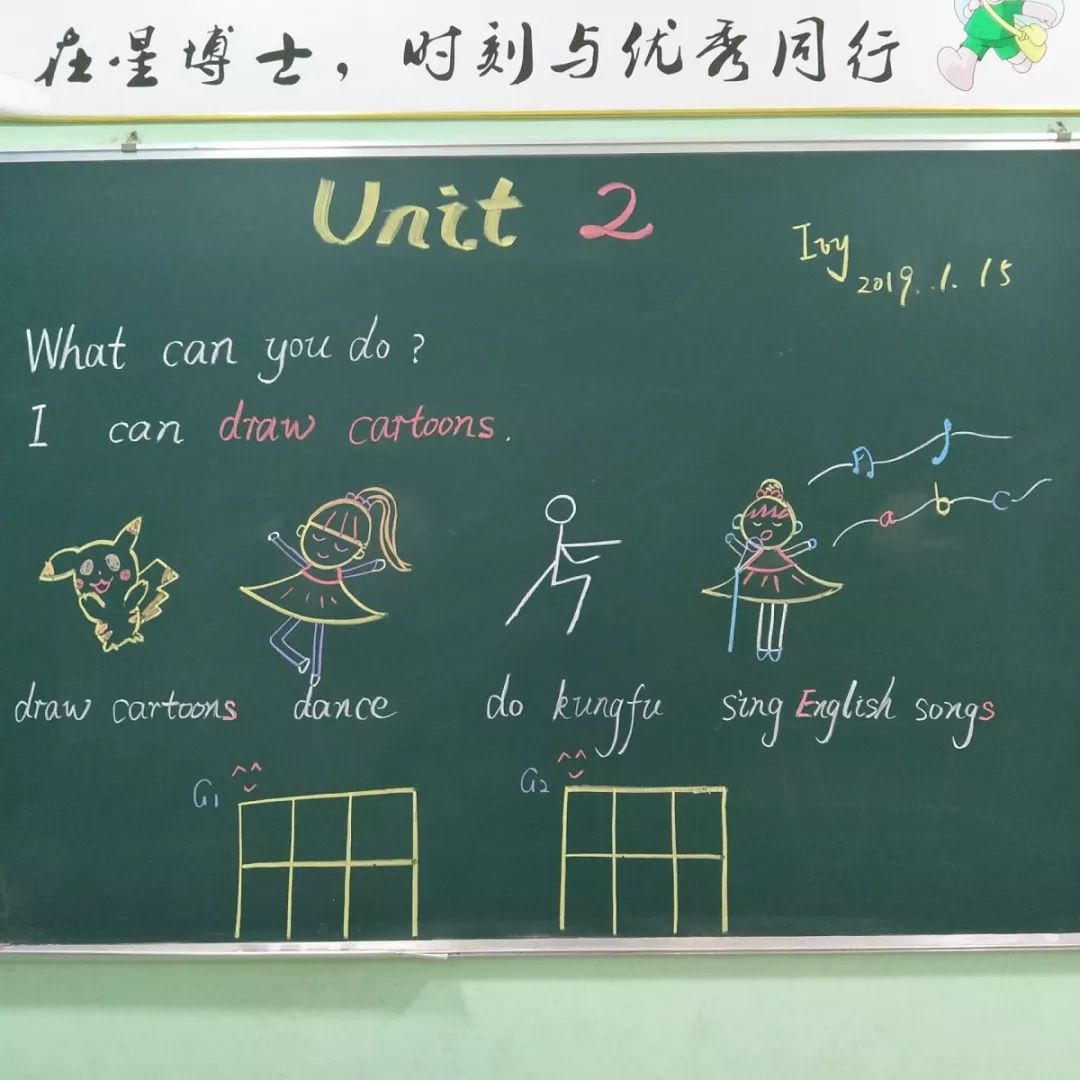 在星博士，时刻与优秀同行
Unit 2
Ivy
2019.1.15
What can you do?
I can draw cartoons.
a b c
draw cartoons dance do kungfu sing English songs
G1 G2